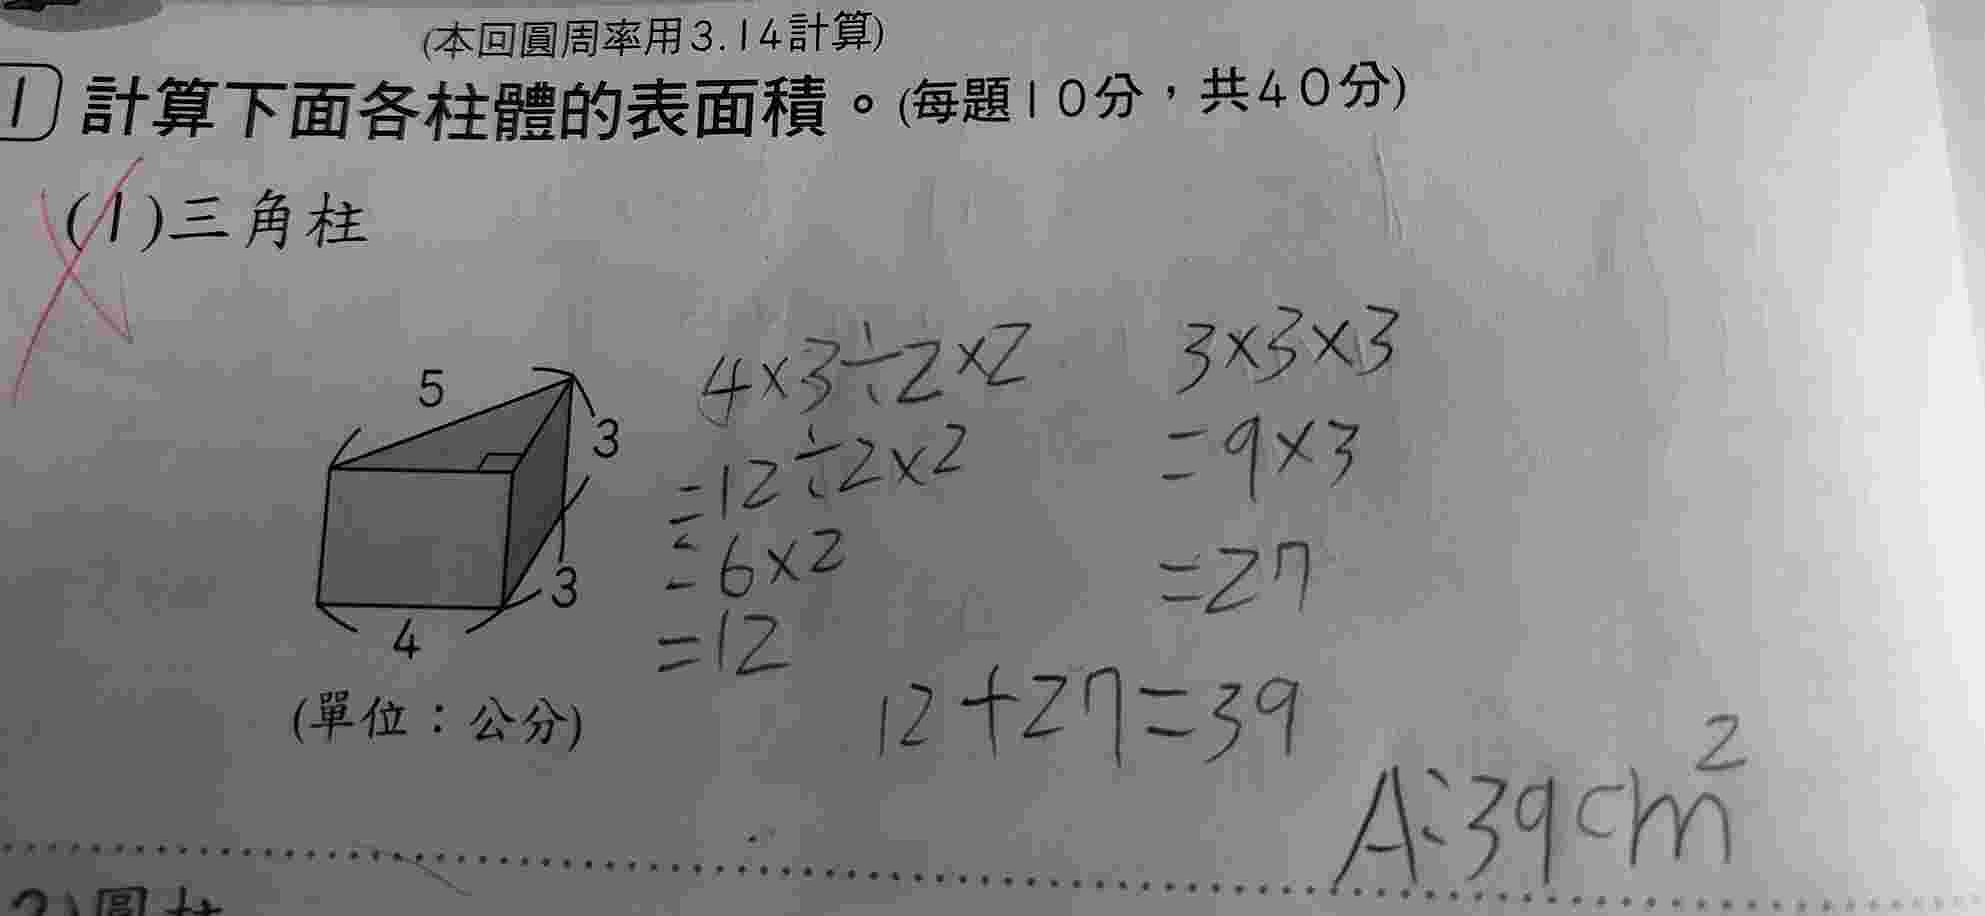 (本回圓周率用3.14計算)
1 計算下面各柱體的表面積。(每題10分,共40分)
(1)三角柱
5
3
3
4
(單位:公分)
4×3÷2×2
=12÷2×2
=6×2
=12
3×3×3
=9×3
=27
12+27=39
A:39cm²
2)圓柱